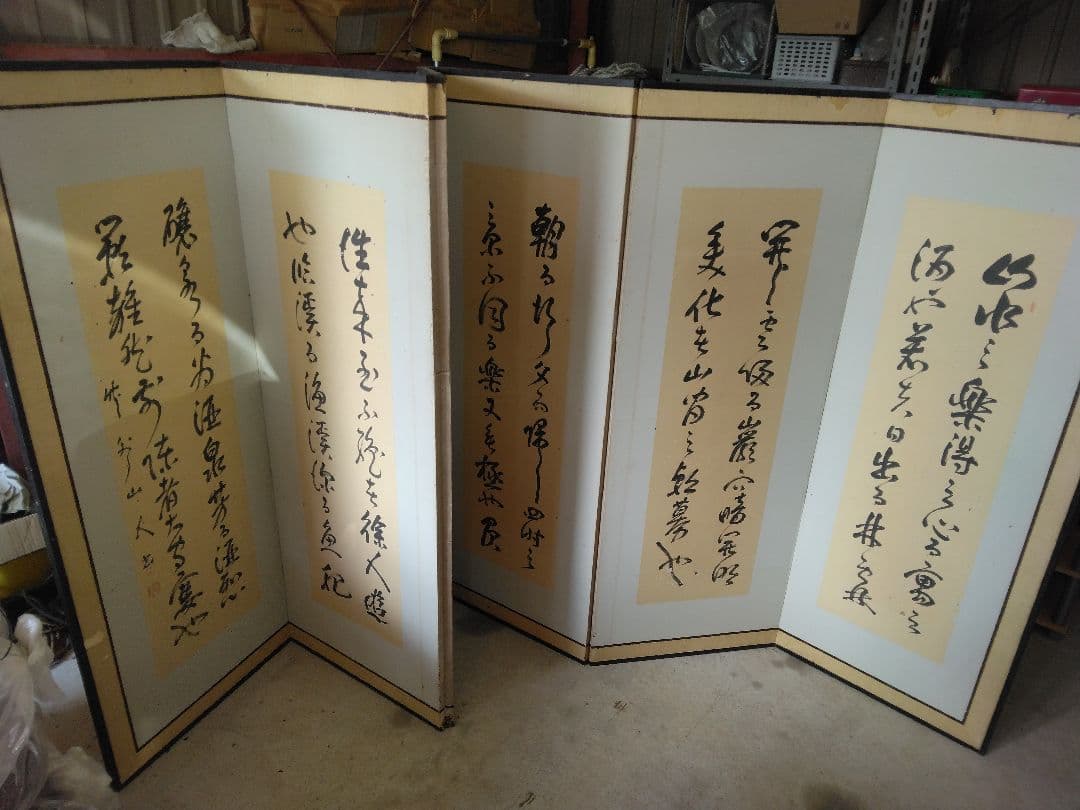 山水之樂得之心而寓之
酒也若夫日出而林霏
開雲歸而巖穴明
變化者山間之朝暮也
朝而往而歸四時之
景不同而樂無也
往來而不絶者滁人遊
也臨溪而漁溪深而魚肥
釀泉而為酒泉芳而酒洌
雜然前陳者太守宴也
山人書